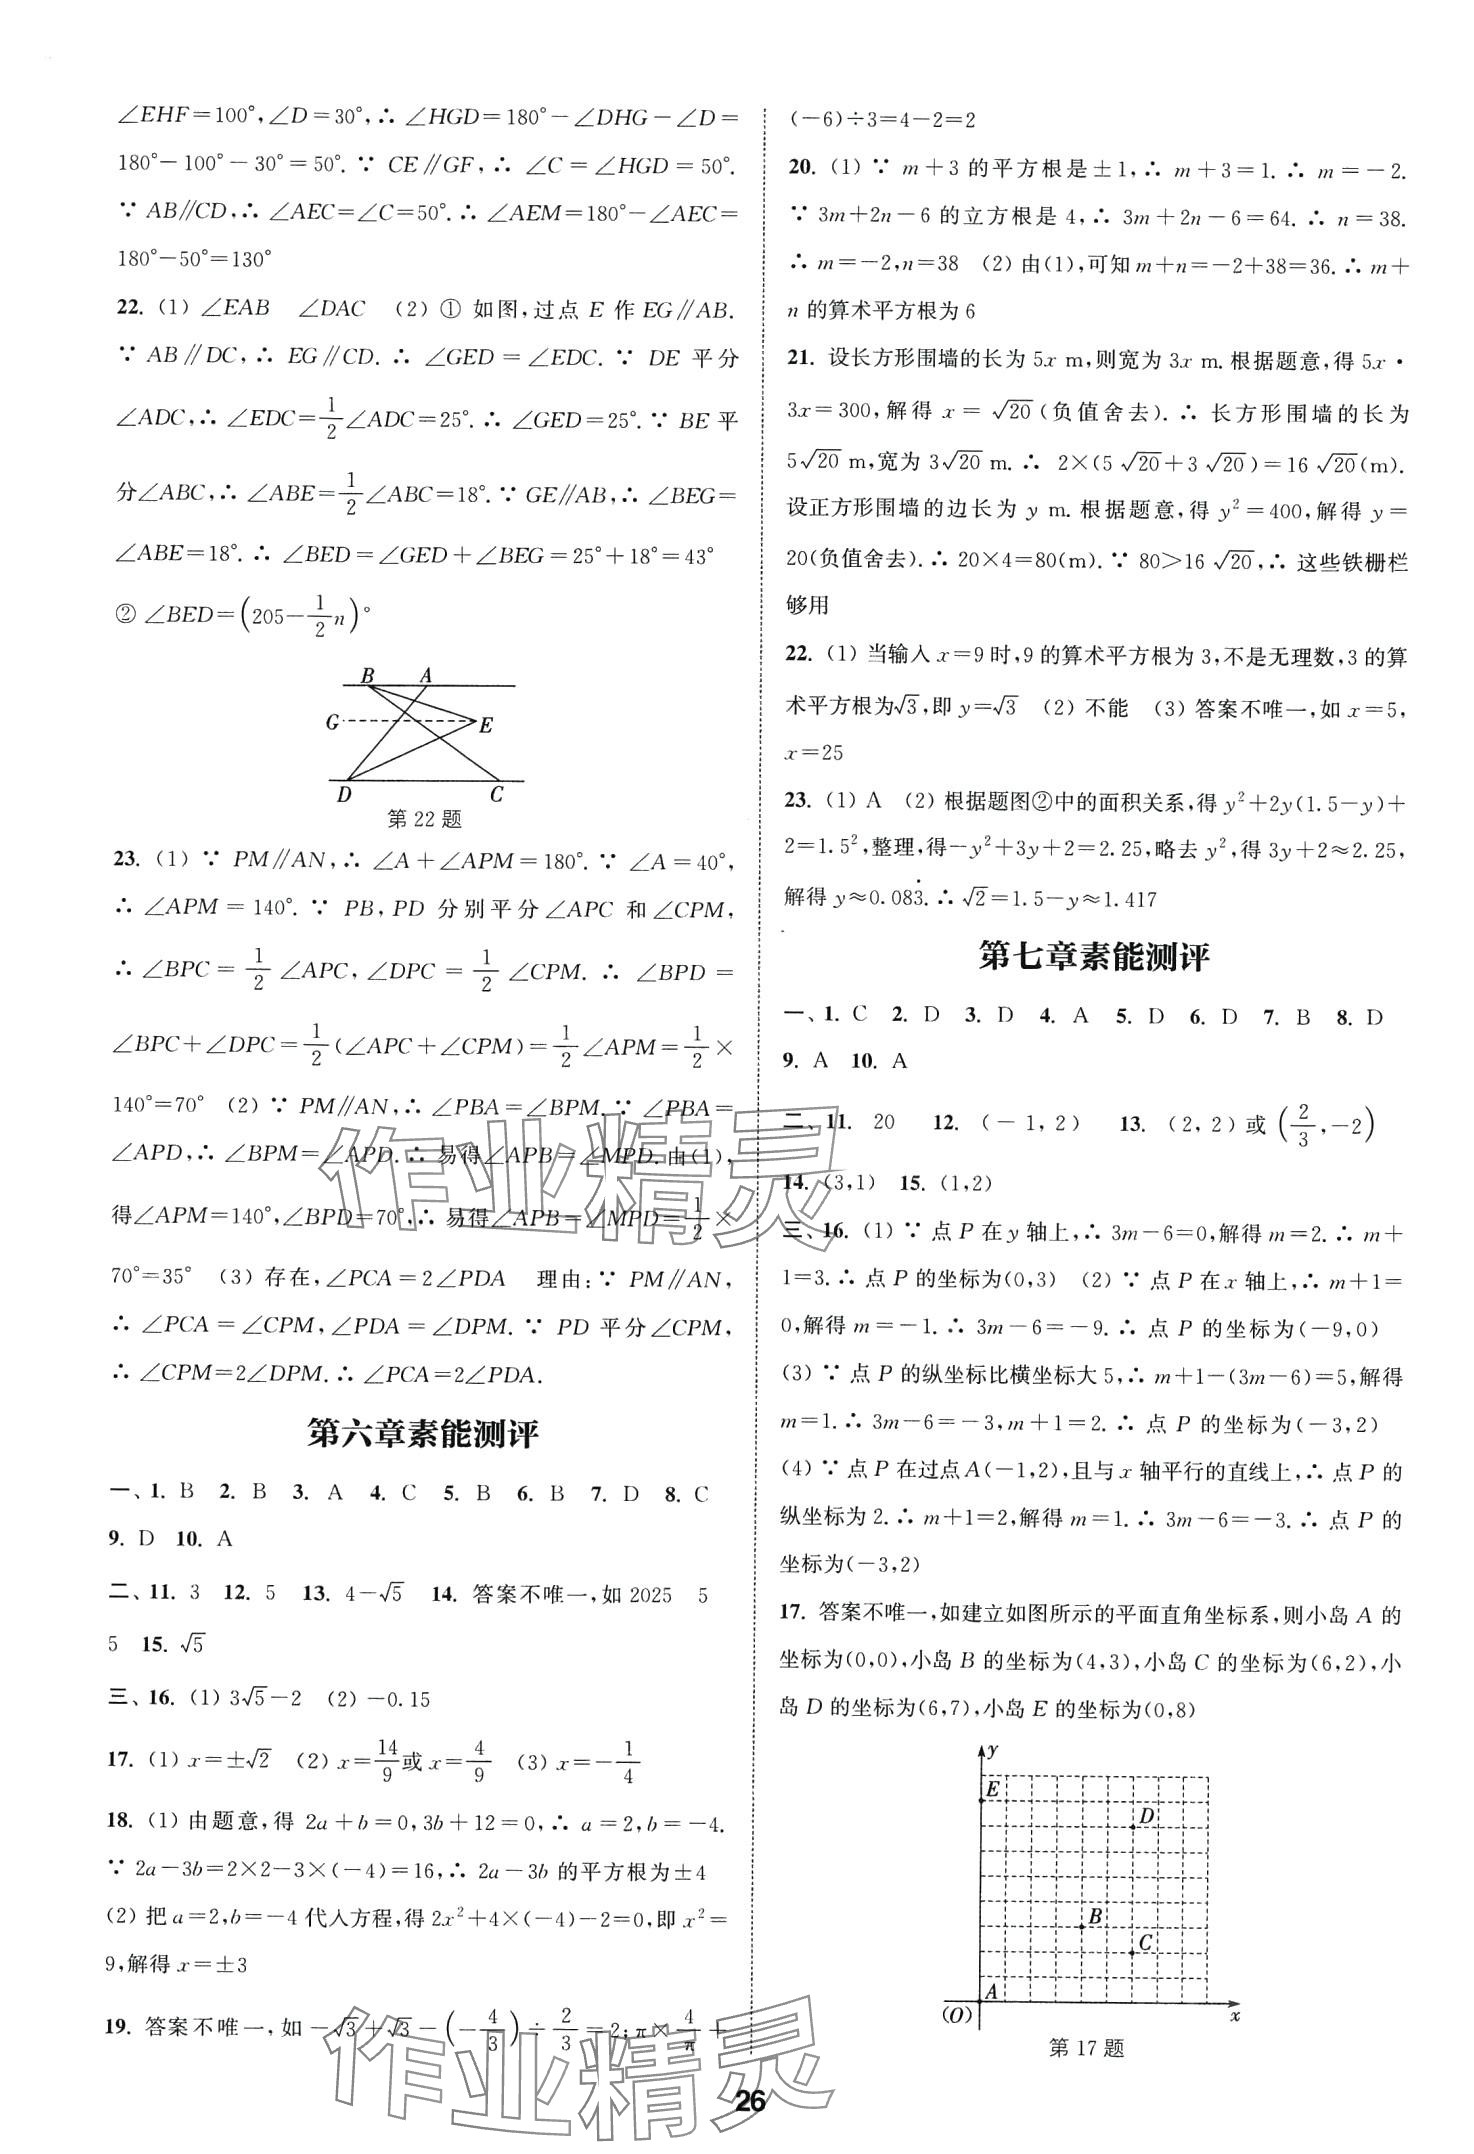 ∠EHF=100°,∠D=30°,∴ ∠HGD=180°-∠DHG-∠D=
180°-100°-30°=50°. ∵ CE∥GF,∴ ∠C=∠HGD=50°.
∵ AB∥CD,∴ ∠AEC=∠C=50°.∴ ∠AEM=180°-∠AEC=
180°-50°=130°
22. (1) ∠EAB ∠DAC (2) ① 如图,过点 E 作 EG∥AB.
∵ AB∥DC,∴ EG∥CD. ∴ ∠GED=∠EDC. ∵ DE 平分
∠ADC,∴ ∠EDC=1/2∠ADC=25°.∴ ∠GED=25°.∵ BE 平
分∠ABC,∴ ∠ABE=1/2∠ABC=18°.∵ GE∥AB,∴ ∠BEG=
∠ABE=18°. ∴ ∠BED=∠GED+∠BEG=25°+18°=43°
② ∠BED=(205-1/2n)°
B A
G E
D C
第 22 题
23. (1) ∵ PM∥AN,∴ ∠A+∠APM=180°. ∵ ∠A=40°,
∴ ∠APM=140°. ∵ PB,PD 分别平分∠APC 和∠CPM,
∴ ∠BPC=1/2∠APC,∠DPC=1/2∠CPM. ∴ ∠BPD=
∠BPC+∠DPC=1/2(∠APC+∠CPM)=1/2∠APM=1/2×
140°=70° (2) ∵ PM∥AN,∴ ∠PBA=∠BPM.∵ ∠PBA=
∠APD,∴ ∠BPM=∠APD.∴ 易得∠APB=∠MPD.由(1),
得∠APM=140°,∠BPD=70°,∴ 易得∠APB=∠MPD=1/2×
70°=35° (3) 存在,∠PCA=2∠PDA 理由:∵ PM∥AN,
∴ ∠PCA=∠CPM,∠PDA=∠DPM.∵ PD 平分∠CPM,
∴ ∠CPM=2∠DPM.∴ ∠PCA=2∠PDA.
第六章素能测评
一、1. B 2. B 3. A 4. C 5. B 6. B 7. D 8. C
9. D 10. A
二、11. 3 12. 5 13. 4-√5 14. 答案不唯一,如 2025 5
5 15. √5
三、16. (1) 3√5-2 (2) -0.15
17. (1) x=±√2 (2) x=14/9或 x=4/9 (3) x=-1/4
18. (1) 由题意,得 2a+b=0,3b+12=0,∴ a=2,b=-4.
∵ 2a-3b=2×2-3×(-4)=16,∴ 2a-3b 的平方根为±4
(2) 把 a=2,b=-4 代入方程,得 2x²+4×(-4)-2=0,即 x²=
9,解得 x=±3
19. 答案不唯一,如 -√3+√3-(-4/3)÷2/3=2;π×4/π+
(-6)÷3=4-2=2
20. (1) ∵ m+3 的平方根是±1,∴ m+3=1. ∴ m=-2.
∵ 3m+2n-6 的立方根是 4,∴ 3m+2n-6=64. ∴ n=38.
∴ m=-2,n=38 (2) 由(1),可知 m+n=-2+38=36.∴ m+
n 的算术平方根为 6
21. 设长方形围墙的长为 5x m,则宽为 3x m.根据题意,得 5x·
3x=300,解得 x=√20(负值舍去). ∴ 长方形围墙的长为
5√20 m,宽为 3√20 m.∴ 2×(5√20+3√20)=16√20(m).
设正方形围墙的边长为 y m.根据题意,得 y²=400,解得 y=
20(负值舍去).∴ 20×4=80(m).∵ 80>16√20,∴ 这些铁栅栏
够用
22. (1) 当输入 x=9 时,9 的算术平方根为 3,不是无理数,3 的算
术平方根为√3,即 y=√3 (2) 不能 (3) 答案不唯一,如 x=5,
x=25
23. (1) A (2) 根据题图②中的面积关系,得 y²+2y(1.5-y)+
2=1.5²,整理,得-y²+3y+2=2.25,略去 y²,得 3y+2≈2.25,
解得 y≈0.083̇.∴ √2=1.5-y≈1.417
第七章素能测评
一、1. C 2. D 3. D 4. A 5. D 6. D 7. B 8. D
9. A 10. A
二、11. 20 12. (-1,2) 13. (2,2)或(2/3,-2)
14. (3,1) 15. (1,2)
三、16. (1) ∵ 点 P 在 y 轴上,∴ 3m-6=0,解得 m=2.∴ m+
1=3.∴ 点 P 的坐标为(0,3) (2) ∵ 点 P 在 x 轴上,∴ m+1=
0,解得 m=-1.∴ 3m-6=-9.∴ 点 P 的坐标为(-9,0)
(3) ∵ 点 P 的纵坐标比横坐标大 5,∴ m+1-(3m-6)=5,解得
m=1.∴ 3m-6=-3,m+1=2.∴ 点 P 的坐标为(-3,2)
(4) ∵ 点 P 在过点 A(-1,2),且与 x 轴平行的直线上,∴ 点 P 的
纵坐标为 2.∴ m+1=2,解得 m=1.∴ 3m-6=-3.∴ 点 P 的
坐标为(-3,2)
17. 答案不唯一,如建立如图所示的平面直角坐标系,则小岛 A 的
坐标为(0,0),小岛 B 的坐标为(4,3),小岛 C 的坐标为(6,2),小
岛 D 的坐标为(6,7),小岛 E 的坐标为(0,8)
y
E
D
B
C
A
(O) x
第 17 题
作业精灵
作业精灵
26